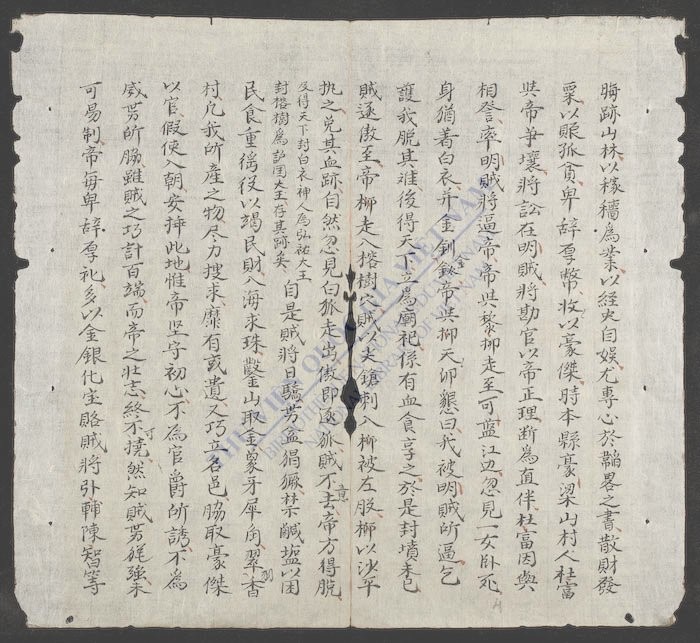 晦跡山林以稼穡為業以經史自娛尤專心於韜畧之書散財發
粟以賑孤貧卑辞厚幣收以豪傑時本縣豪梁山村人杜富
與帝爭壤將訟在明賊將勘官以帝正理断為直伴杜富因與
相詧率明賊將逼帝帝與黎柳走至可藍江边忽見一女卧死
身猶著白衣并金釧釵帝與柳天卯懇曰我被明賊所逼乞
護我脱其难後得天下立為廟祀係有血食享之於是封墳未已
賊逐傲至帝柳走入榕樹穴賊以夫鎗刺入柳被左股柳以沙平
执之免其血跡自然忽見白狐走出傲即逐狐賊不去帝方得脱
及得天下封白衣神人為弘祐大王
封榕樹為護国大王存其跡矣
自是賊將日驕劳益猖獗禁鹹塩以困
民食重徭役以竭民財入海求珠鑿山取金象牙犀角翠香
村凡我所產之物尽力搜求靡有或遺又巧立名邑脇取豪傑
以官假使入朝安揷此地惟帝坚守初心不為官爵所誘不為
威劳所脇雖賊之巧計百端而帝之壮志終不撓然知賊劳強未
可易制帝每卑辞厚礼多以金銀化宝賂賊將引輔陳智等
THƯ VIỆN QUỐC GIA VIỆT NAM
BIBLIOTHÈQUE NATIONALE DU VIETNAM
NATIONAL LIBRARY OF VIETNAM